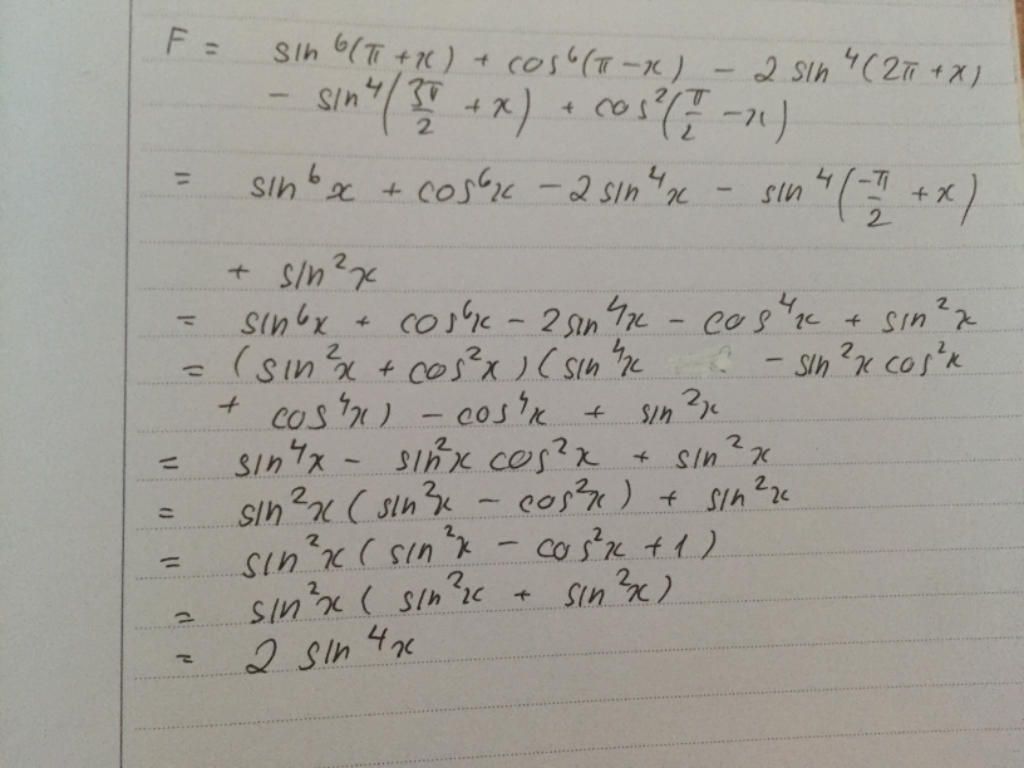 F = sin⁶(π+x) + cos⁶(π-x) - 2 sin⁴(2π+x)
- sin⁴(3π/2 + x) + cos²(π/2 - x)
= sin⁶x + cos⁶x - 2 sin⁴x - sin⁴(-π/2 + x)
+ sin²x
= sin⁶x + cos⁶x - 2 sin⁴x - cos⁴x + sin²x
= (sin²x + cos²x)(sin⁴x - sin²x cos²x
+ cos⁴x) - cos⁴x + sin²x
= sin⁴x - sin²x cos²x + sin²x
= sin²x (sin²x - cos²x) + sin²x
= sin²x (sin²x - cos²x + 1)
= sin²x (sin²x + sin²x)
= 2 sin⁴x